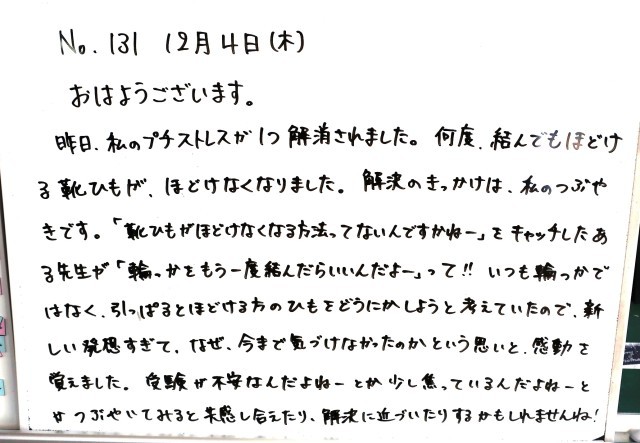 No. 131 12月4日(木)
おはようございます。
昨日、私のプチストレスが1つ解消されました。何度、結んでもほどけ
る靴ひもが、ほどけなくなりました。解決のきっかけは、私のつぶや
きです。「靴ひもがほどけなくなる方法ってないんですかねー」をキャッチしたあ
る先生が「輪っかをもう一度結んだらいいんだよー」って!! いつも輪っかで
はなく、引っぱるとほどける方のひもをどうにかしようと考えていたので、新
しい発想すぎて、なぜ、今まで気づけなかったのかという思いと、感動を
覚えました。受験が不安なんだよねーとか少し焦っているんだよねーと
かつぶやいてみると共感し合えたり、解決に近づいたりするかもしれませんね!